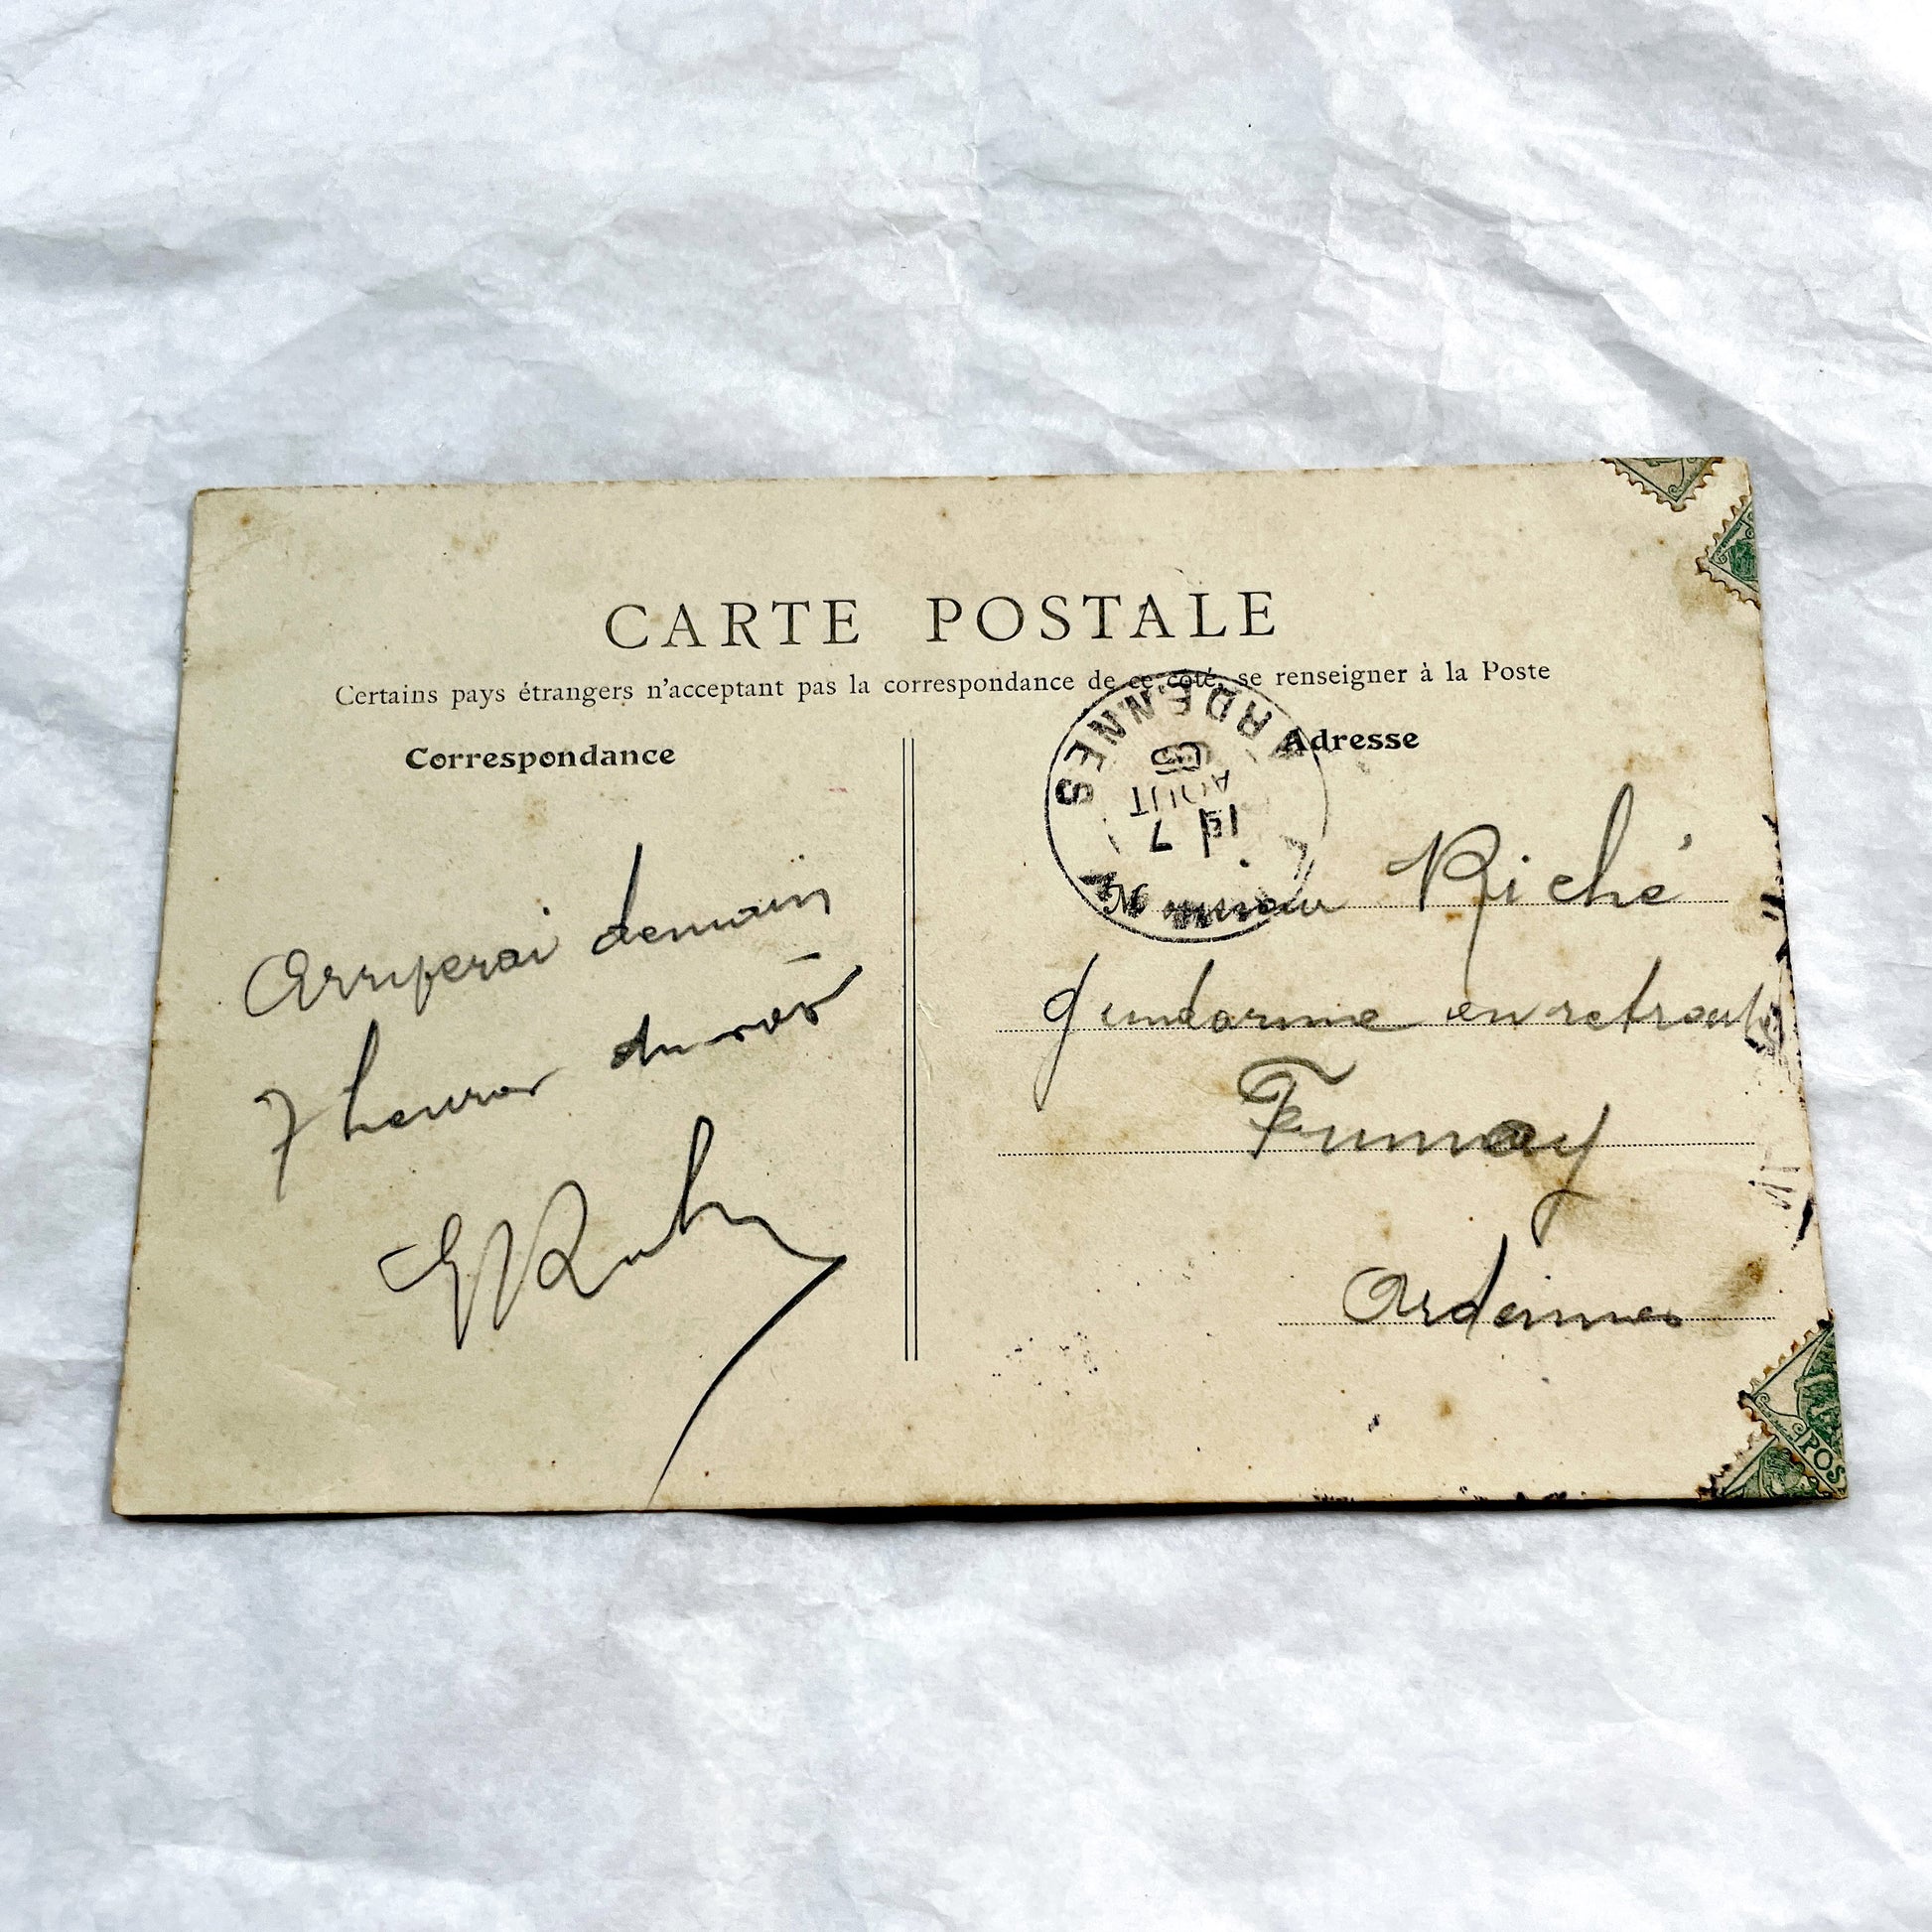 CARTE POSTALE
Certains pays étrangers n'acceptant pas la correspondance de ce côté, se renseigner à la Poste
Correspondance
Adresse
Arriverai demain
7 heures du soir
ARDENNES
7
AOUT
Monsieur Riché
gendarme en retraite
Fumay
Ardennes
POS